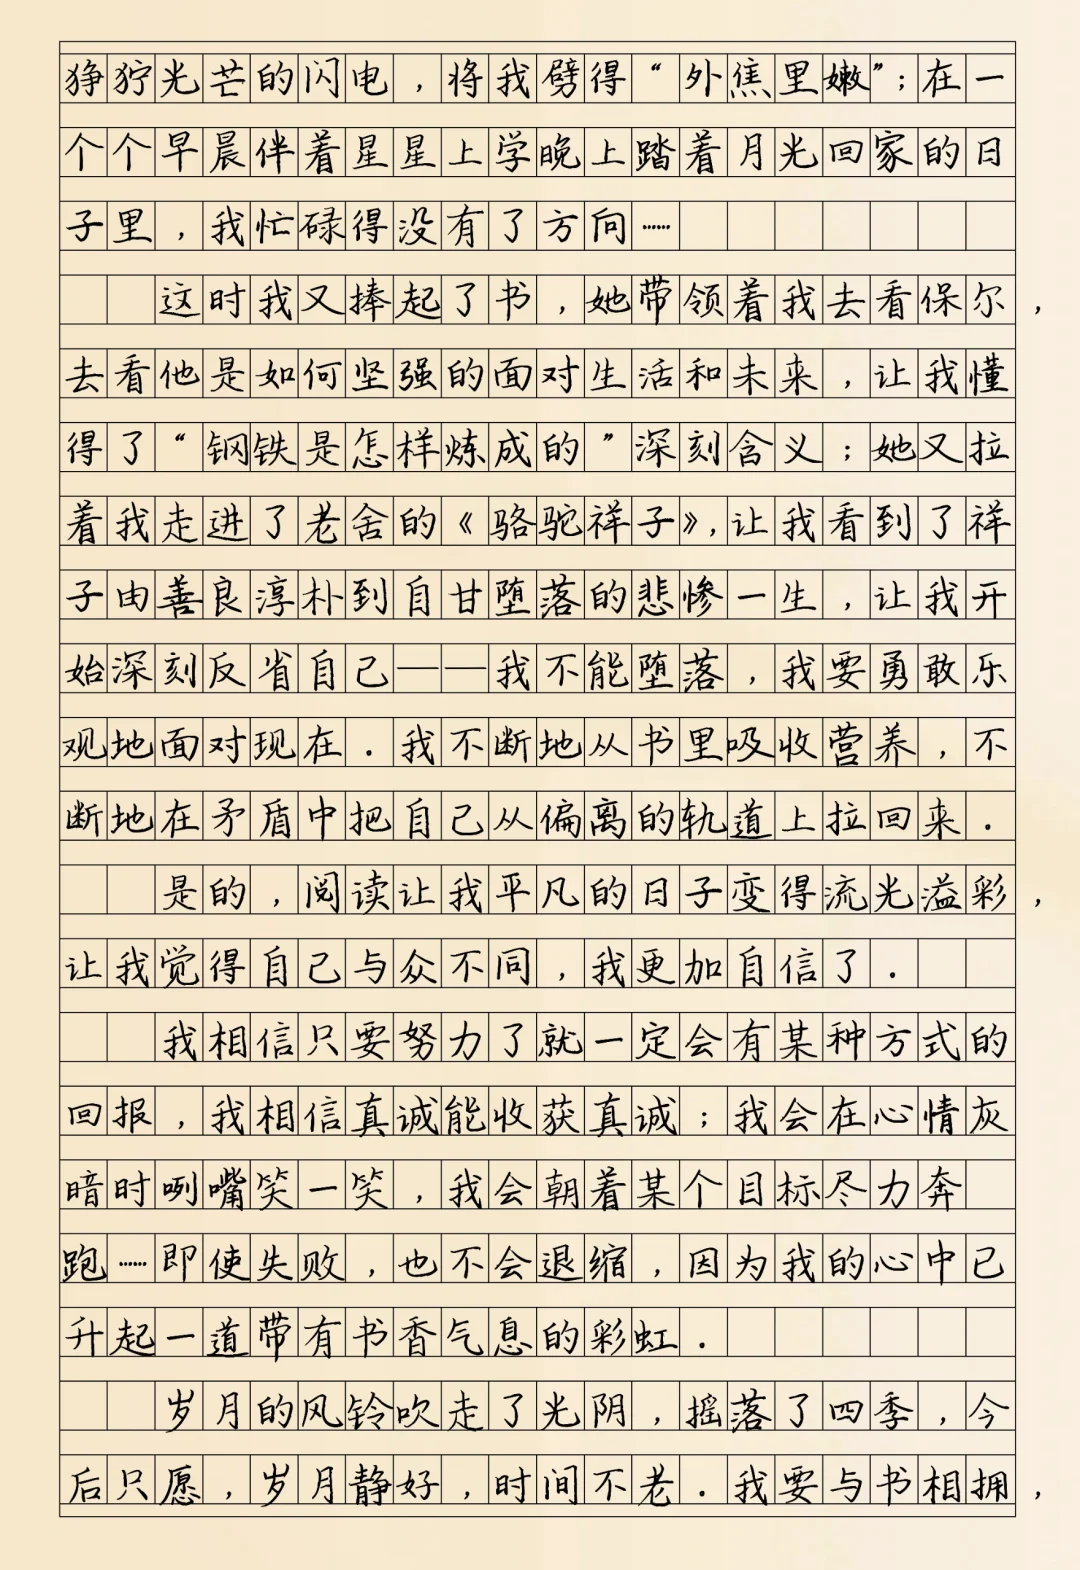 狰狞光芒的闪电，将我劈得“外焦里嫩”；在一
个个早晨伴着星星上学晚上踏着月光回家的日
子里，我忙碌得没有了方向……
这时我又捧起了书，她带领着我去看保尔，
去看他是如何坚强的面对生活和未来，让我懂
得了“钢铁是怎样炼成的”深刻含义；她又拉
着我走进了老舍的《骆驼祥子》，让我看到了祥
子由善良淳朴到自甘堕落的悲惨一生，让我开
始深刻反省自己——我不能堕落，我要勇敢乐
观地面对现在．我不断地从书里吸收营养，不
断地在矛盾中把自己从偏离的轨道上拉回来．
是的，阅读让我平凡的日子变得流光溢彩，
让我觉得自己与众不同，我更加自信了．
我相信只要努力了就一定会有某种方式的
回报，我相信真诚能收获真诚；我会在心情灰
暗时咧嘴笑一笑，我会朝着某个目标尽力奔
跑……即使失败，也不会退缩，因为我的心中已
升起一道带有书香气息的彩虹．
岁月的风铃吹走了光阴，摇落了四季，今
后只愿，岁月静好，时间不老．我要与书相拥，